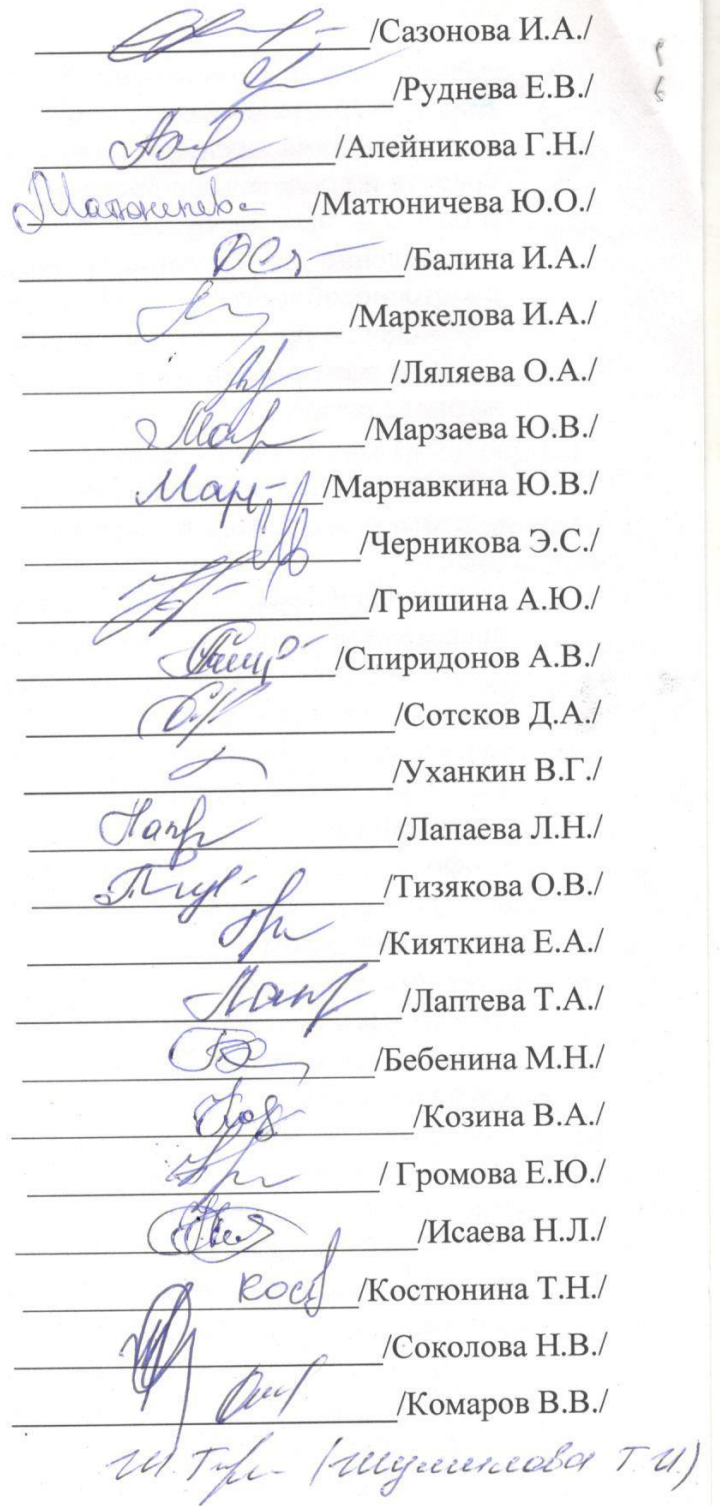 /Сазонова И.А./
/Руднева Е.В./
/Алейникова Г.Н./
Матюничева /Матюничева Ю.О./
/Балина И.А./
/Маркелова И.А./
/Ляляева О.А./
/Марзаева Ю.В./
/Марнавкина Ю.В./
/Черникова Э.С./
/Гришина А.Ю./
/Спиридонов А.В./
/Сотсков Д.А./
/Уханкин В.Г./
/Лапаева Л.Н./
/Тизякова О.В./
/Кияткина Е.А./
/Лаптева Т.А./
/Бебенина М.Н./
/Козина В.А./
/ Громова Е.Ю./
/Исаева Н.Л./
/Костюнина Т.Н./
/Соколова Н.В./
/Комаров В.В./
(Шумилова Т.И.)